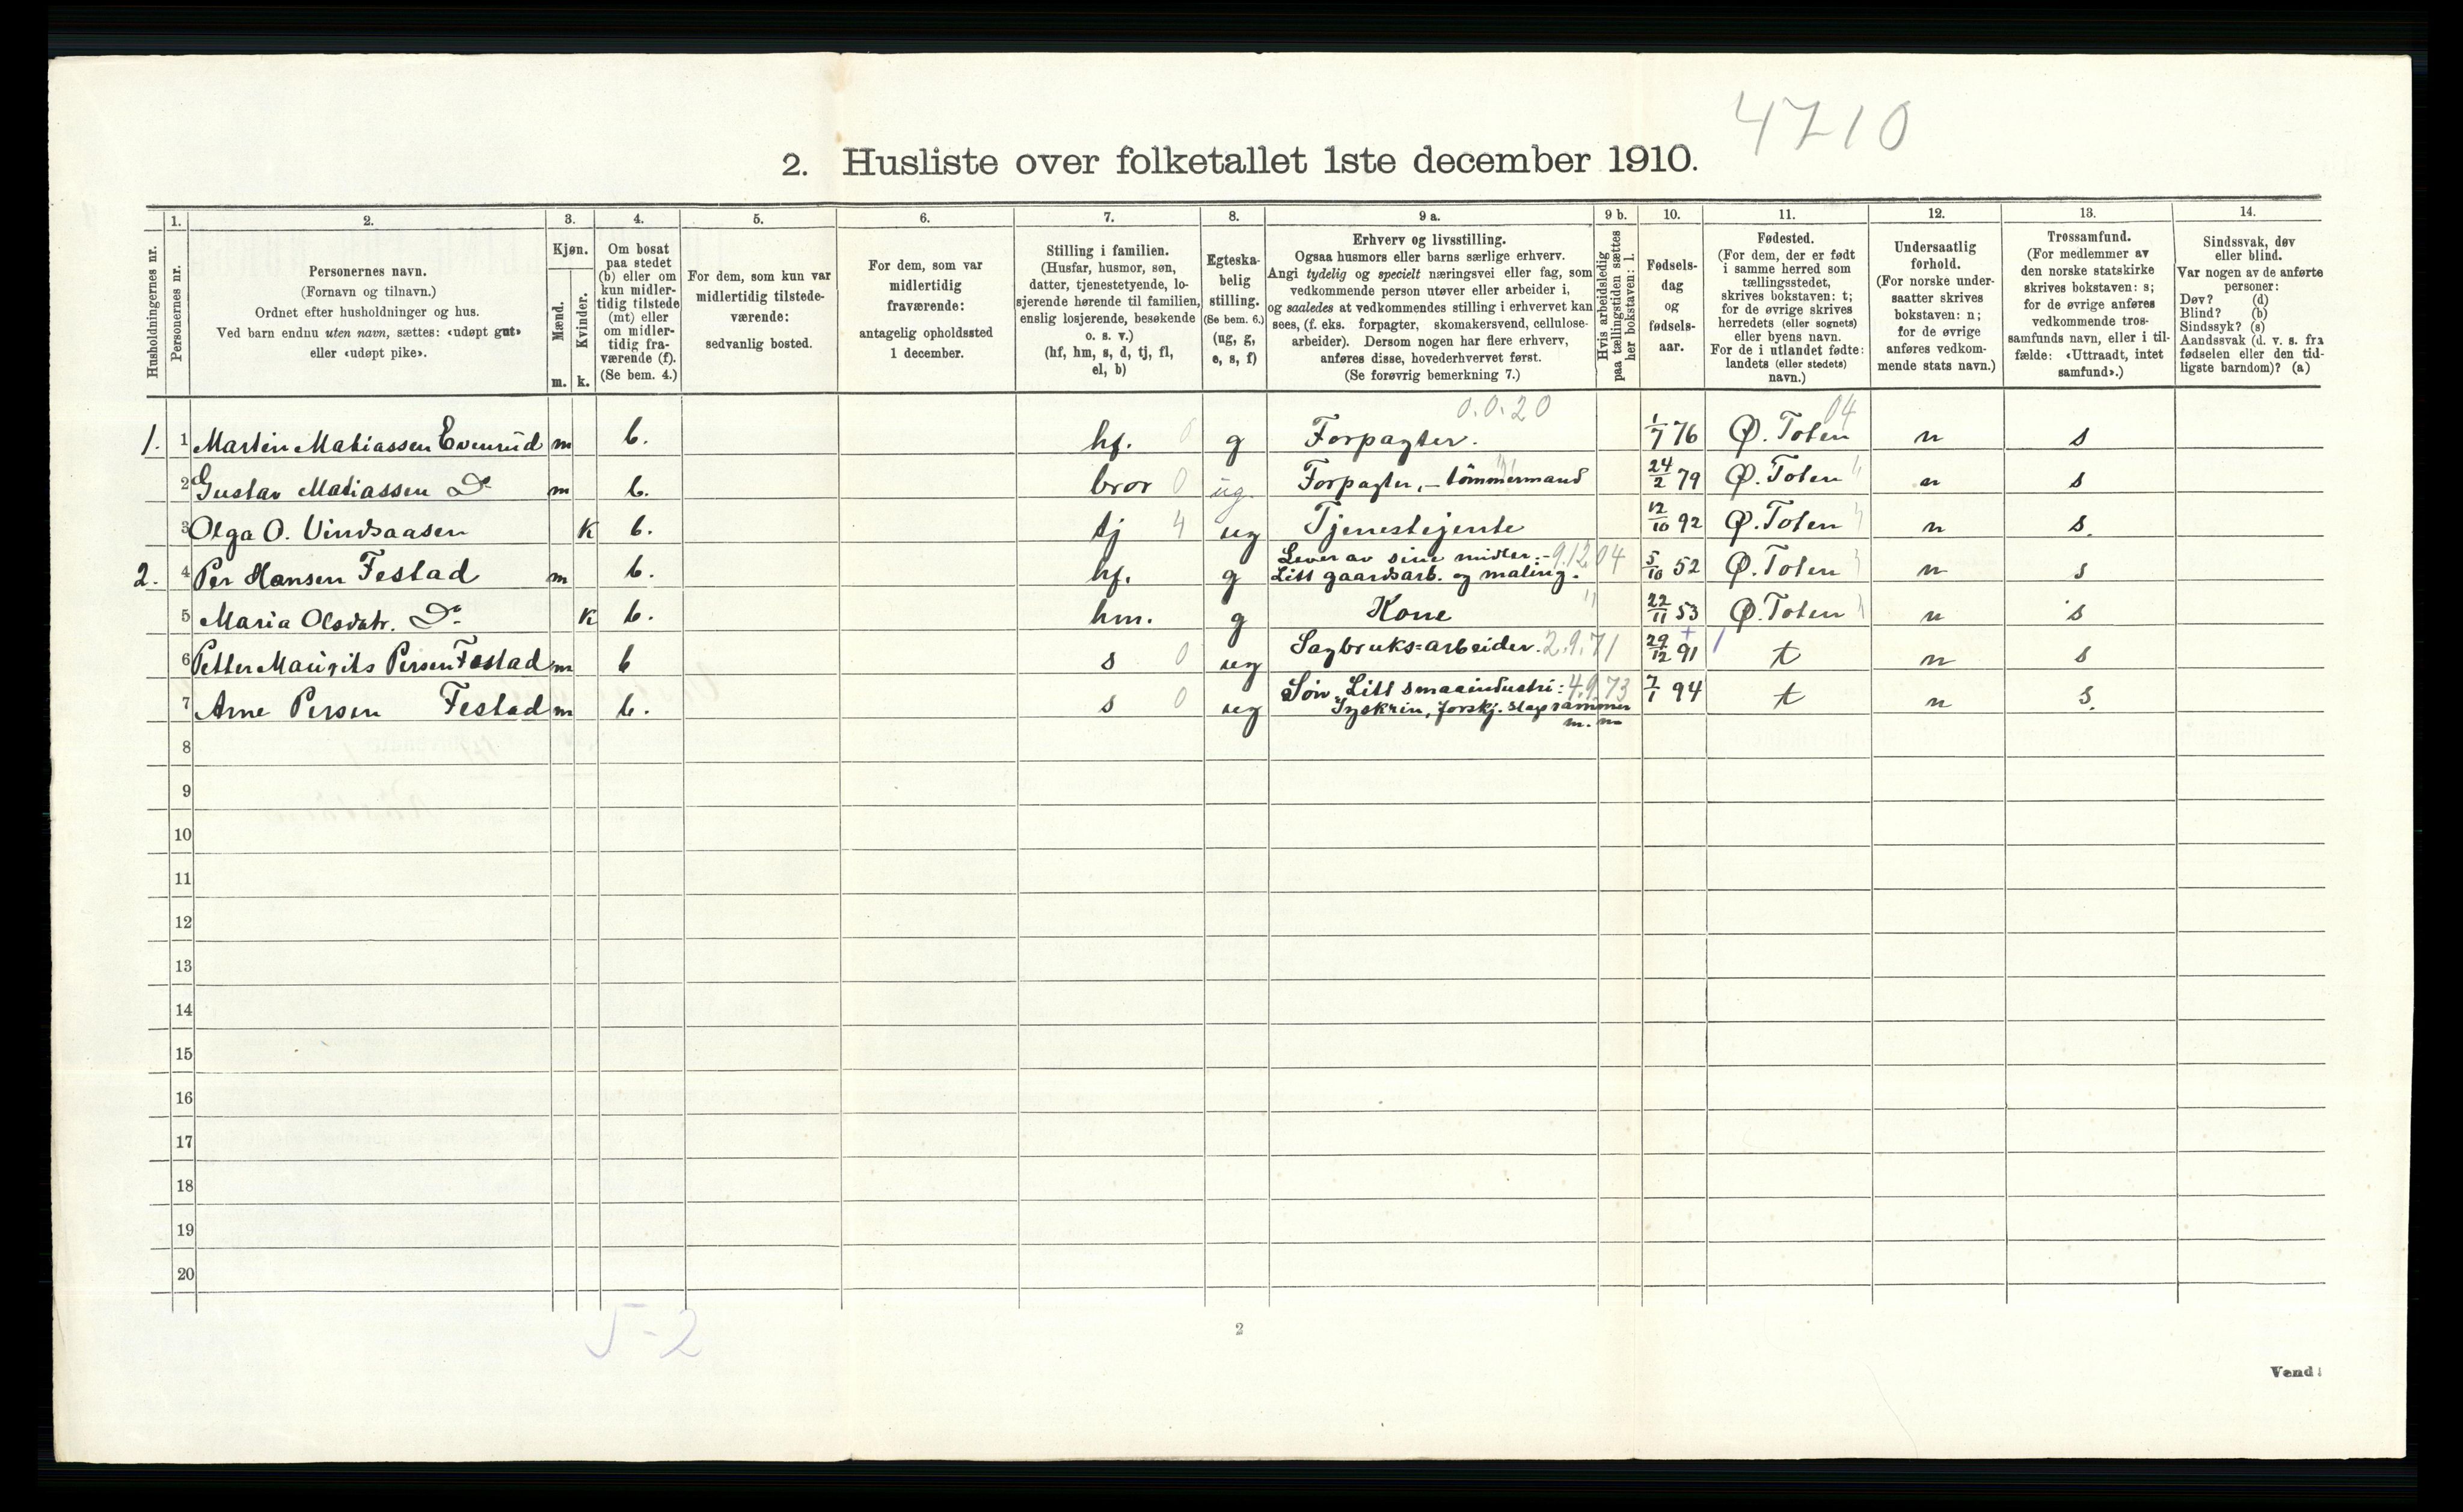 4710
2. Husliste over folketallet 1ste december 1910.
1. 2. 3. 4. 5. 6. 7. 8. 9 a. 9 b. 10. 11. 12. 13. 14.
Husholdningernes nr.
Personernes nr.
Personernes navn.
(Fornavn og tilnavn.)
Ordnet efter husholdninger og hus.
Ved barn endnu uten navn, sættes: «udøpt gut»
eller «udøpt pike».
Kjøn.
Mænd.
Kvinder.
m. k.
Om bosat
paa stedet
(b) eller om
kun midler-
tidig tilstede
(mt) eller
om midler-
tidig fra-
værende (f).
(Se bem. 4.)
For dem, som kun var
midlertidig tilstede-
værende:
sedvanlig bosted.
For dem, som var
midlertidig
fraværende:
antagelig opholdssted
1 december.
Stilling i familien.
(Husfar, husmor, søn,
datter, tjenestetyende, lo-
sjerende hørende til familien,
enslig losjerende, besøkende
o. s. v.)
(hf, hm, s, d, tj, fl,
el, b)
Egteska-
belig
stilling.
(Se bem. 6.)
(ug, g,
e, s, f)
Erhverv og livsstilling.
Ogsaa husmors eller barns særlige erhverv.
Angi tydelig og specielt næringsvei eller fag, som
vedkommende person utøver eller arbeider i,
og saaledes at vedkommendes stilling i erhvervet kan
sees, (f. eks. forpagter, skomakersvend, cellulose-
arbeider). Dersom nogen har flere erhverv,
anføres disse, hovederhvervet først.
(Se forøvrig bemerkning 7.)
Hvis arbeidsledig
paa tællingstiden sættes
her bokstaven: l.
Fødsels-
dag
og
fødsels-
aar.
Fødested.
(For dem, der er født
i samme herred som
tællingsstedet,
skrives bokstaven: t;
for de øvrige skrives
herredets (eller sognets)
eller byens navn.
For de i utlandet fødte:
landets (eller stedets)
navn.)
Undersaatlig
forhold.
(For norske under-
saatter skrives
bokstaven: n;
for de øvrige
anføres vedkom-
mende stats navn.)
Trossamfund.
(For medlemmer av
den norske statskirke
skrives bokstaven: s;
for de øvrige anføres
vedkommende tros-
samfunds navn, eller i til-
fælde: «Uttraadt, intet
samfund».)
Sindssvak, døv
eller blind.
Var nogen av de anførte
personer:
Døv? (d)
Blind? (b)
Sindssyk? (s)
Aandssvak (d. v. s. fra
fødselen eller den tid-
ligste barndom)? (a)
0.0.20 04
1. 1 Martin Matiassen Evenrud m b. hf. 0 g Forpagter. 1/7 76 Ø. Toten n s
2 Gustav Matiassen Do m b. bror 0 ug. Forpagter, - tömmermand 24/2 79 Ø. Toten n s
3 Olga O. Vindsaasen k b. tj 4 ug Tjenestejente 12/10 92 Ø. Toten n s.
2. 4 Per Hansen Festad m b. hf. g Lever av sine midler. - 9.12.04
Litt gaardsarb. og maling. 5/10 52 Ø. Toten n s
5 Maria Olsdatr. Do k b. hm. g Kone 22/11 53 Ø. Toten n s
6 Petter Maurits Persen Festad m b s 0 ug Sagbruks=arbeider. 2.9.71 29/12 91 t n s
7 Arne Persen Festad m b. s 0 ug Søn. Litt smaaindustri: 4.9.73 7/1 94 t n s.
Syskrin, forskj. slags rammer
m. m
8
9
10
11
12
13
14
15
16
17
18
19
20
5-2
2
Vend!